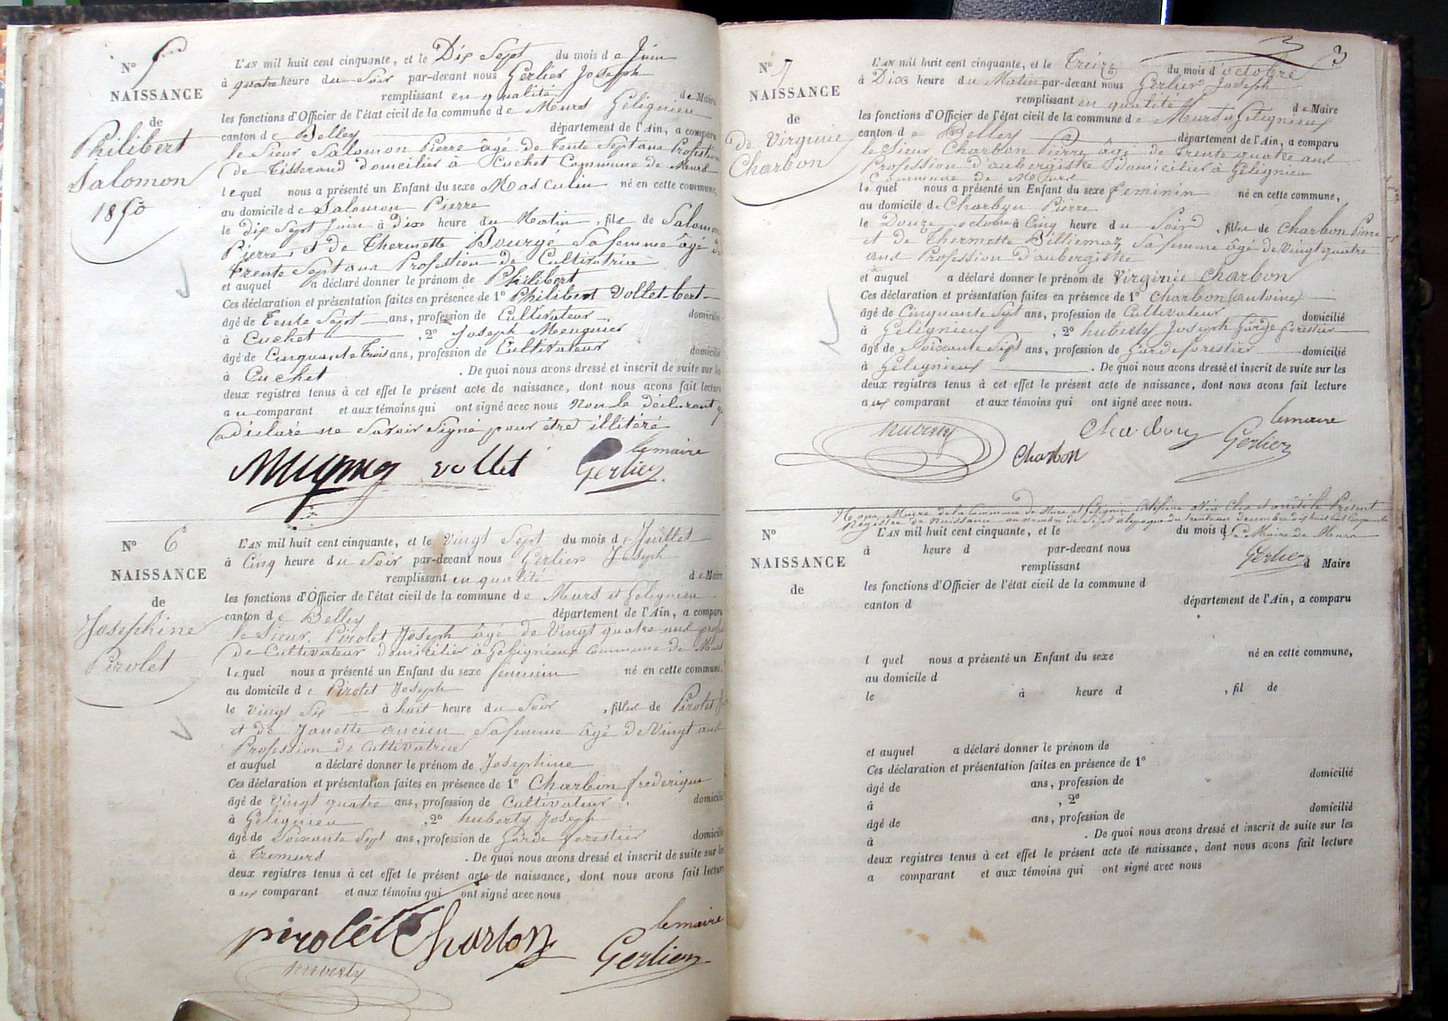 N° 5
NAISSANCE
de
Philibert
Salomon
1850
L'AN mil huit cent cinquante, et le Dix Sept du mois de Juin
à quatre heure du Soir par-devant nous Gerlier Joseph
remplissant en qualité de Maire
les fonctions d'Officier de l'état civil de la commune de Meurs Gélignieu
canton de Belley département de l'Ain, a comparu
le Sieur Salomon Pierre âgé de trente Sept ans Profession
de Tisserand domicilier à Cuchet Commune de Meurs
lequel nous a présenté un Enfant du sexe Masculin né en cette commune,
au domicile de Salomon Pierre
le dix Sept Juin à Dixe heure du Matin, fils de Salomon
Pierre et de Thermette Bourgé Safemme âgé de
trente Sept ans Profession de Cultivatrice
et auquel a déclaré donner le prénom de Philibert
Ces déclaration et présentation faites en présence de 1° Philibert Vollet-bert
âgé de Tente Sept ans, profession de Cultivateur domicilié
à Cuchet, 2° Joseph Meuguier
âgé de Cinquante trois ans, profession de Cultivateur domicilié
à Cuchet. De quoi nous avons dressé et inscrit de suite sur les
deux registres tenus à cet effet le présent acte de naissance, dont nous avons fait lecture
au comparant et aux témoins qui ont signé avec nous Non le déclarant q
a déclaré ne Savoir Signé pour être illitéré
vollet
lemaire
Gerlier
N° 6
NAISSANCE
de
Josephine
Pirolet
L'AN mil huit cent cinquante, et le vingt Sept du mois de Juillet
à Cinq heure du Soir par-devant nous Gerlier Joseph
remplissant en qualité de Maire
les fonctions d'Officier de l'état civil de la commune de Meurs et Gelignieu
canton de Belley département de l'Ain, a comparu
le Sieur Pirolet Joseph âgé de Vingt quatre ans profession
de Cultivateur domicilier à Gelignieux Commune de Meurs
lequel nous a présenté un Enfant du sexe feminin né en cette commune,
au domicile de Pirolet Joseph
le vingt Six à huit heure du Soir, filles de Pirolet
et de Janette ancien Safemme âgé de Vingt ans
Profession de Cultivatrice
et auquel a déclaré donner le prénom de Josephine
Ces déclaration et présentation faites en présence de 1° Charbon frederique
âgé de vingt quatre ans, profession de Cultivateur domicilié
à Geligнieu, 2° huberty Joseph
âgé de Soixante Sept ans, profession de Garde forestier domicilié
à Tremurs. De quoi nous avons dressé et inscrit de suite sur les
deux registres tenus à cet effet le présent acte de naissance, dont nous avons fait lecture
aux comparant et aux témoins qui ont signé avec nous
pirolet Charbon
lemaire
Gerlier
huberty
3
3
N° 7
NAISSANCE
de
de Virginie
Charbon
L'AN mil huit cent cinquante, et le treize du mois d'octobre
à Dixe heure du Matin par-devant nous Gerlier Joseph
remplissant en qualité de Maire
les fonctions d'Officier de l'état civil de la commune de Meurs Gelignieux
canton de Belley département de l'Ain, a comparu
le Sieur Charbon Pierre âgé de trente quatre ans
Profession d'aubergiste domicilier à Gélignieu
Commune de Meurs
lequel nous a présenté un Enfant du sexe feminin né en cette commune,
au domicile de Charbon Pierre
le Douze octobre à Cinq heure du Soir, filles de Charbon Pierre
et de Thermette Billiemaz Safemme âgé de vingt quatre
ans Profession d'aubergiste
et auquel a déclaré donner le prénom de Virginie Charbon
Ces déclaration et présentation faites en présence de 1° Charbon (antoine)
âgé de Cinquante Sept ans, profession de Cultivateur domicilié
à Gelignieux, 2° huberty Joseph Garde forestier
âgé de Soixante Sept ans, profession de Garde forestier domicilié
à Gelignieux. De quoi nous avons dressé et inscrit de suite sur les
deux registres tenus à cet effet le présent acte de naissance, dont nous avons fait lecture
aux comparant et aux témoins qui ont signé avec nous.
huberty
Charbon
Charbon
lemaire
Gerlier
Nous Maire de la Commune de Meurs et Gelignieu le Présent
Registre de Naissance au nombre de Sept
N° L'AN mil huit cent cinquante, et le du mois d Le Maire de Meurs
NAISSANCE
de
à heure d par-devant nous Gerlier
remplissant d Maire
les fonctions d'Officier de l'état civil de la commune d
canton d département de l'Ain, a comparu
l quel nous a présenté un Enfant du sexe né en cette commune,
au domicile d
le à heure d, fil de
et auquel a déclaré donner le prénom de
Ces déclaration et présentation faites en présence de 1°
âgé de ans, profession de domicilié
à, 2°
âgé de ans, profession de domicilié
à. De quoi nous avons dressé et inscrit de suite sur les
deux registres tenus à cet effet le présent acte de naissance, dont nous avons fait lecture
a comparant et aux témoins qui ont signé avec nous